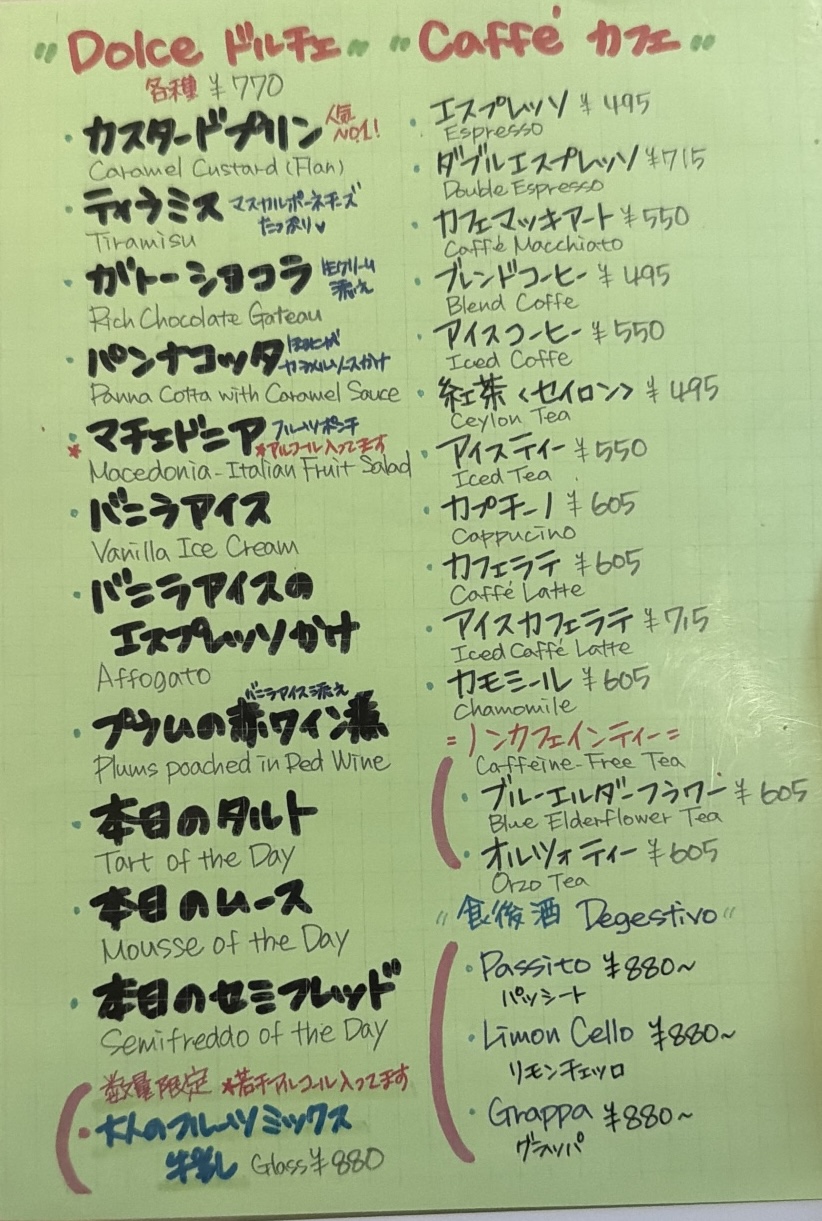 " Dolce ドルチェ "
各種 ¥770
・カスタードプリン 人気NO.1!
Caramel Custard (Flan)
・ティラミス マスカルポーネチーズ
たっぷり♥
Tiramisu
・ガトーショコラ 生クリーム
添え
Rich Chocolate Gateau
・パンナコッタ ほろにが
カラメルソースかけ
Panna Cotta with Caramel Sauce
・マチェドニア フルーツポンチ
* *アルコール入ってます
Macedonia - Italian Fruit Salad
・バニラアイス
Vanilla Ice Cream
・バニラアイスの
エスプレッソかけ
Affogato
バニラアイス添え
・プラムの赤ワイン煮
Plums poached in Red Wine
・本日のタルト
Tart of the Day
・本日のムース
Mousse of the Day
・本日のセミフレッド
Semifreddo of the Day
数量限定 *若干アルコール入ってます
・大人のフルーツミックス
牛乳 Glass ¥880
" Caffé カフェ "
・エスプレッソ ¥495
Espresso
・ダブルエスプレッソ ¥715
Double Espresso
・カフェマッキアート ¥550
Caffé Macchiato
・ブレンドコーヒー ¥495
Blend Coffe
・アイスコーヒー ¥550
Iced Coffe
・紅茶 <セイロン> ¥495
Ceylon Tea
・アイスティー ¥550
Iced Tea
・カプチーノ ¥605
Cappucino
・カフェラテ ¥605
Caffé Latte
・アイスカフェラテ ¥715
Iced Caffé Latte
・カモミール ¥605
Chamomile
=ノンカフェインティー=
Caffeine-Free Tea
・ブルーエルダーフラワー ¥605
Blue Elderflower Tea
・オルヅォティー ¥605
Orzo Tea
" 食後酒 Degestivo "
・Passito ¥880~
パッシート
・Limon Cello ¥880~
リモンチェッロ
・Grappa ¥880~
グラッパ